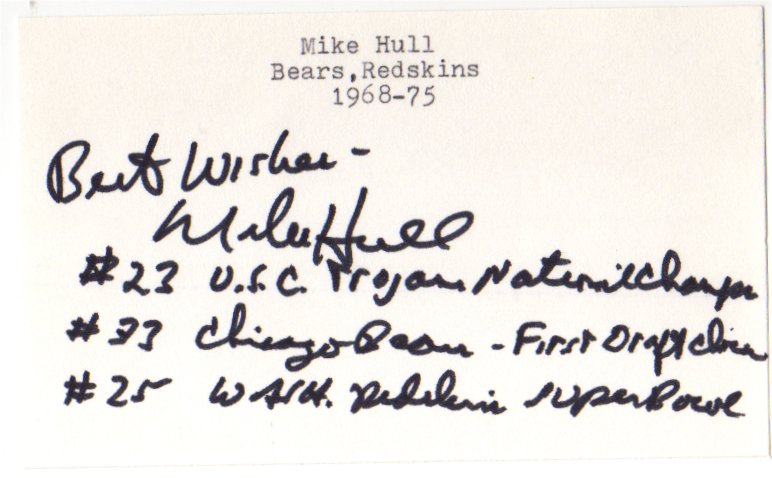 Mike Hull
Bears,Redskins
1968-75
Best Wishes -
Mike Hull
#23 U.S.C. Trojans National Champs
#33 Chicago Bears - First Draft Choice
#25 WASH. Redskins SuperBowl